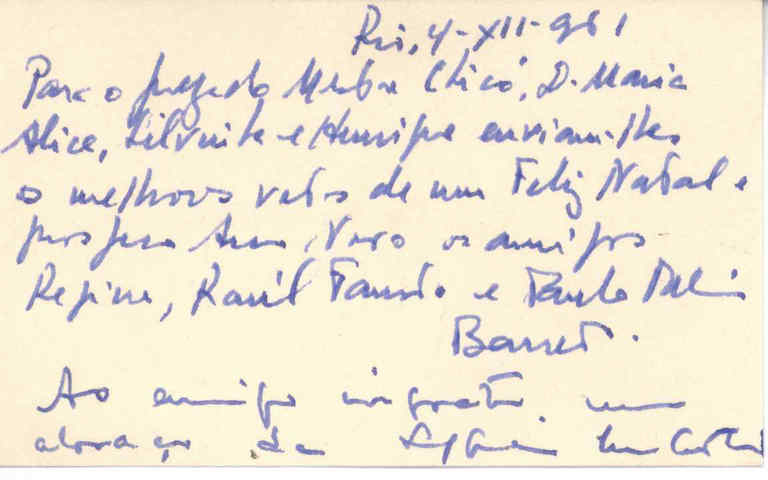 Rio, 4-XII-961
Para o prezado Mestre Chicó, D. Maria
Alice, Silvinha e Henrique enviam-lhes
os melhores votos de um Feliz Natal e
prospero Ano Novo os amigos
Regina, Raúl Fausto e Paulo
Barreto.
Ao amigo ingrato um
abraço da